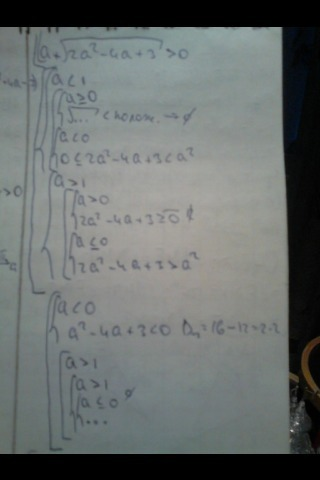 a + √2a²-4a+3 > 0
a < 1
a ≥ 0
√... < полож. → ∅
a < 0
0 ≤ 2a²-4a+3 < a²
a > 1
a > 0
2a²-4a+3 ≥ 0 ∅
a ≤ 0
2a²-4a+3 > a²
a < 0
a²-4a+3 < 0 D = 16-12 = 2·2
a > 1
a > 1
a ≤ 0 ∅
...